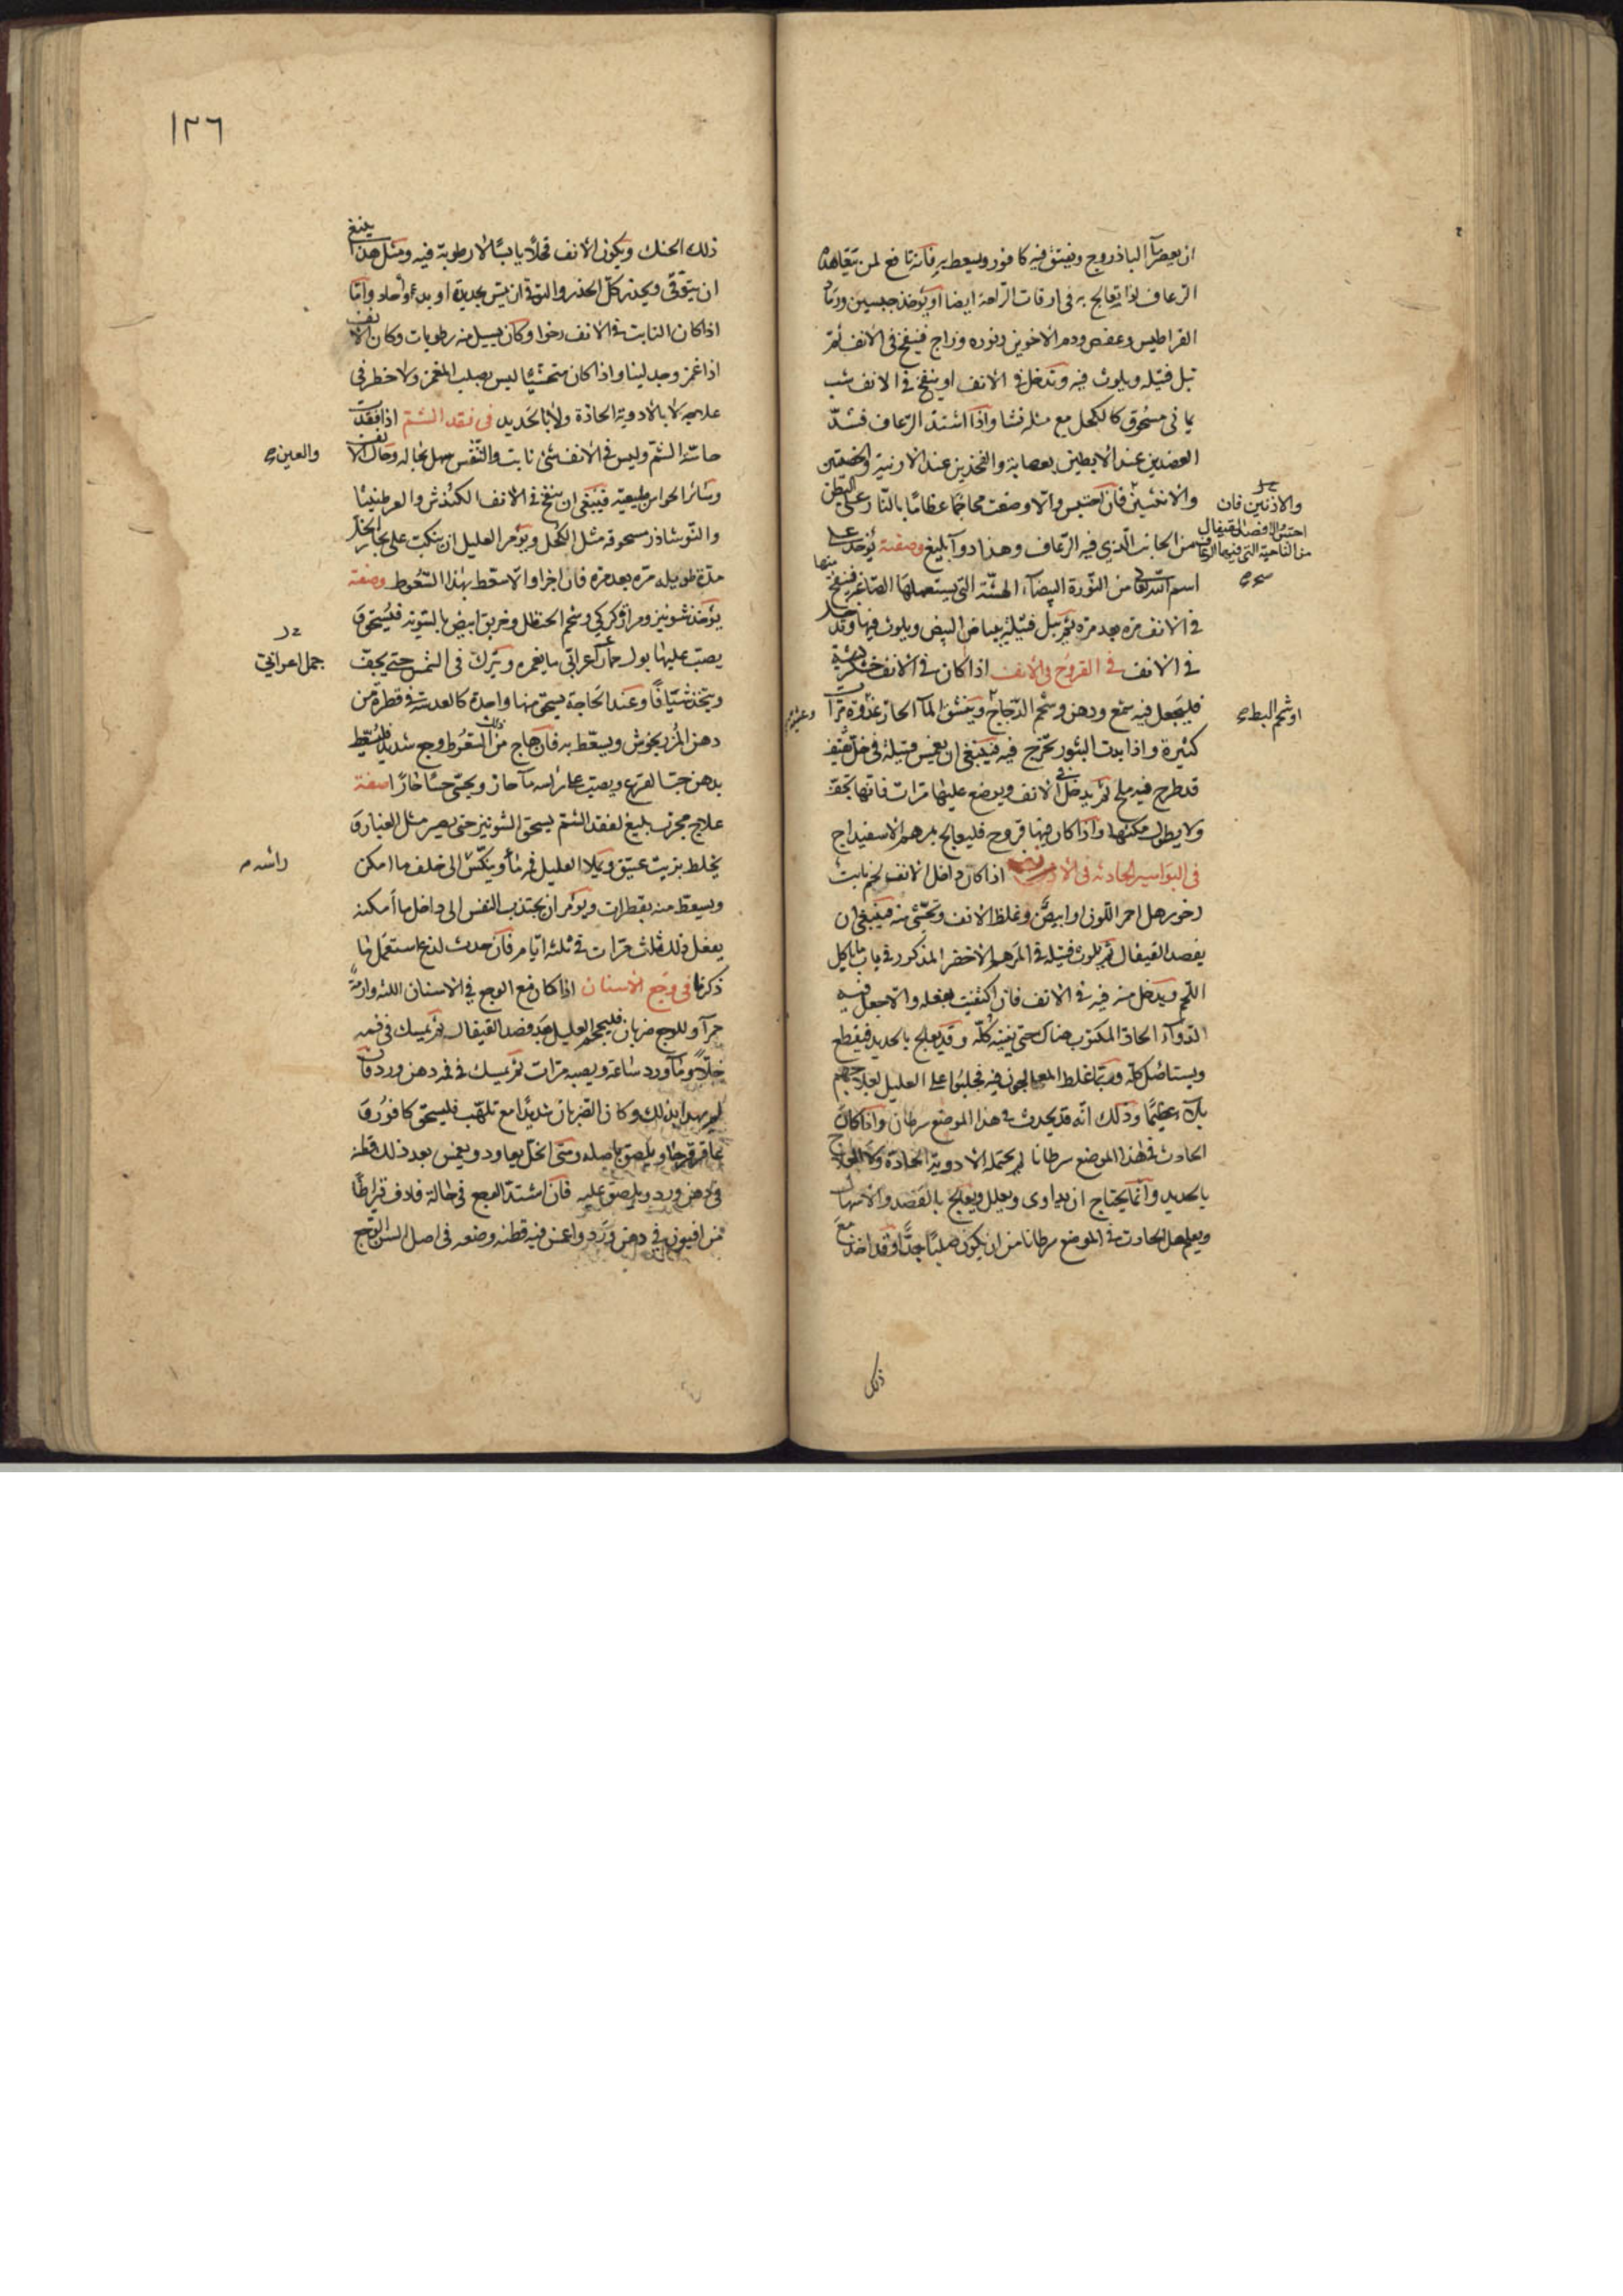 ان يعصر ماء الباذروج ويفتق فيه كافور ويسعط به فانه نافع لمن يتعاهده
الرعاف اذا يعالج به في اوقات الراحة ايضا او يؤخذ جبسين ورماد
القراطيس وعفص ودم الاخوين ونوره وزاج فينفخ في الانف ثم
تبل فتيله ويلوث فيه وتدخل في الانف او ينفخ في الانف شب
يماني مسحوق كالكحل مع مثله نشا واذا اشتد الرعاف فشد
العضدين عند الابطين بعصابة والفخذين عند الارنبة والخصيتين
والانثيين فان احتبس والا وضعت محاجما عظاما بالنار على البطن
من الجانب الذي فيه الرعاف وهذا دواء بليغ وصفته يؤخذ على
اسم الله تعالى من النورة البيضاء الهشة التي يستعملها الصاغة فينفخ منها
في الانف مرة بعد مرة ثم تبل فتيلة ببياض البيض ويلوث فيها وتدخل
في الانف في القروح في الانف اذا كان في الانف خشكريشة
فليجعل فيه شمع ودهن وشحم الدجاج ويستنشق الماء الحار غدوة مرات
كثيرة واذا بدت البثور تخرج فيه فينبغي ان يغمس فتيلة في خل ثقيف
قد طرح فيه ملح ثم يدخل في الانف ويوضع عليها مرات فانها تجف
ولا يطول مكثها واذا كان فيها قروح فليعالج بمرهم الاسفيداج
في البواسير الحادثه في الانف اذا كان داخل الانف لحم نابت
رخو رهل احمر اللون او ابيض وغلظ الانف وتحشى منه فينبغي ان
يفصد القيفال ثم يلوث فتيله في المرهم الاخضر المذكور في باب ما ياكل
اللحم ويدخل منه فيه في الانف فان اكتفيت بفعله والا جعل فيه
الدواء الحاد المكتوب هناك حتى يفنيه كله وقد يعالج بالحديد فيقطع
ويستاصل كله وربما غلط المعالجون فيه فجلبوا على العليل بعلاجهم
بلاء عظيما وذلك انه قد يحدث في هذا الموضع سرطان واذا كان
الحادث في هذا الموضع سرطانا لم يحتمل الادوية الحادة ولا العلاج
بالحديد وانما يحتاج ان يداوى ويعلل ويعالج بالفصد والاسهال
ويعلم هل الحادث في الموضع سرطانا من ان يكون صلبا جدا وقد اخذ مع
والاذنين فان
احتبس والا فصد القيفال
من الناحية التي فيها الرعاف
او شحم البط صح
ذلك
١٢٦
ذلك الحنك ويكون الانف قحلا يابسا لا رطوبة فيه ومثل هذا ينبغي
ان يتوقى ويحذر كل الحذر والتوقي ان يمس بحديدة او بدواء حاد واما
اذا كان النابت في الانف رخوا وكان يسيل منه رطوبات وكان الانف
اذا غمز وجد لينا واذا كان متحشيا ليس بصلب المغمز ولا خطر في
علاجه لا بالادوية الحادة ولا بالحديد في فقد الشم اذا فقدت
حاسة الشم وليس في الانف شئ نابت والتنفس سهل بحاله وحال الانف
وسائر الحواس طبيعية فينبغي ان ينفخ في الانف الكندش والعرطنيثا
والنوشاذر مسحوقه مثل الكحل ويؤمر العليل ان ينكب على بخار الخل
مدة طويله مرة بعد مرة فان اجزا والا سعط بهذا السعوط وصفته
يؤخذ شونيز ومرارة كركي وشحم الحنظل وخربق ابيض بالسوية فليسحق و
يصب عليها بول حمار اعرابي ما يغمره ويترك في الشمس حتى يجف
ويتخذ شيافا وعند الحاجة يسحق منها واحدة كالعدسة في قطرة من
دهن المرزنجوش ويسعط به فان هاج من ذلك السعوط وجع شديد فليسعط
بدهن حب القرع ويصب على راسه ماء حار ويحسى حسا حارا صفة
علاج مجرب بليغ لفقد الشم يسحق الشونيز حتى يصير مثل الغبار و
يخلط بزيت عتيق ويملا العليل فمه ماء وينكس الى خلف ما امكن
ويسعط منه بقطرات ويؤمر ان يجتذب النفس الى داخل ما امكنه
يفعل ذلك ثلاث مرات في ثلثة ايام فان حدث لذع استعمل ما
ذكرنا في وجع الاسنان اذا كان مع الوجع في الاسنان اللثة وارمة
حمراء وللوجع ضربان فليحجم العليل بعد فصد القيفال ثم يمسك في فمه
خلا وماء ورد ساعة ويصبه مرات ثم يمسك في فمه دهن ورد فان
لم يهدا بذلك وكان الضربان شديدا مع تلهب فليسحق كافور و
عاقرقرحا ويلصق باصله ومتى انحل يعاود ويغمس بعد ذلك قطنة
في دهن ورد ويلصق عليه فان اشتد الوجع في حالة فادف قيراطا
من افيون في دهن ورد واغمس فيه قطنه وضعه في اصل السن الوجع
والعين صح
جمل اعرابي
راسه